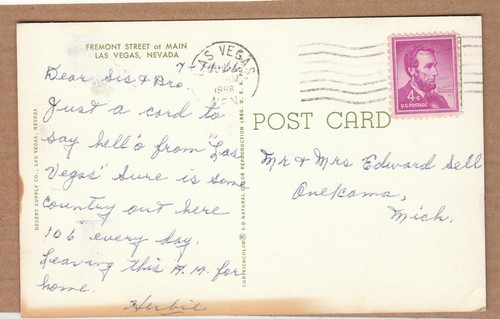 FREMONT STREET at MAIN
LAS VEGAS, NEVADA
Dear Sis & Bro
Just a card to
say hell'o from "Las
Vegas" Sure is some
country out here
106 every day.
Leaving this A.M. for
home.
Herbie
DESERT SUPPLY CO., LAS VEGAS, NEVADA
CURTEICHCOLOR® 3-D NATURAL COLOR REPRODUCTION (REG. U.S.A. PAT. OFF.)
LAS VEGAS
1966
4¢
U.S. POSTAGE
POST CARD
Mr & Mrs Edward Sell
Onekama,
Mich.